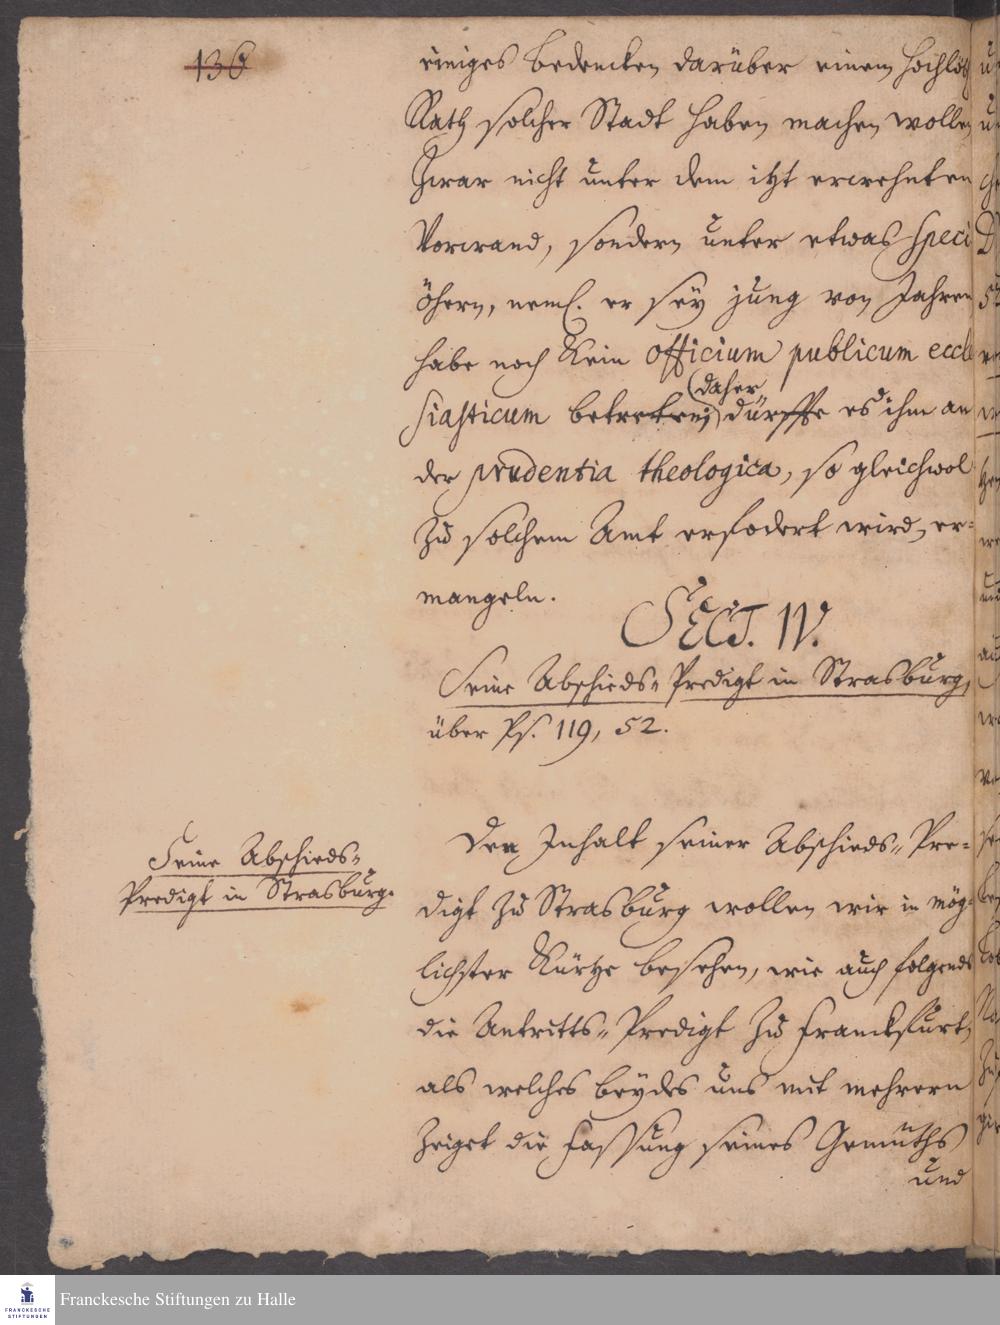 136
einiges Bedencken darüber einem Hochlöbl
Rath solcher Stadt haben machen wollen
Zwar nicht unter dem itzt erwehnten
Vorwand, sondern unter etwas speci
öhern, neml. er sey jung von Jahren
habe noch kein officium publicum eccle
siasticum betreten, (daher) dürffte es ihm an
der prudentia theologica, so gleichwol
zu solchem Amt erfodert wird, er-
mangeln.
SECT. IV.
Seine Abschieds-Predigt in Strasburg,
über Ps. 119, 52.
Seine Abschieds-
Predigt in Strasburg.
Den Inhalt seiner Abschieds-Pre-
digt zu Strasburg wollen wir in mög-
lichster Kürtze besehen, wie auch folgends
die Antritts-Predigt zu Franckfurt,
als welches beydes uns mit mehrern
zeiget die Fassung seines Gemüths
und
Franckesche Stiftungen zu Halle
FRANCKESCHE
STIFTUNGEN